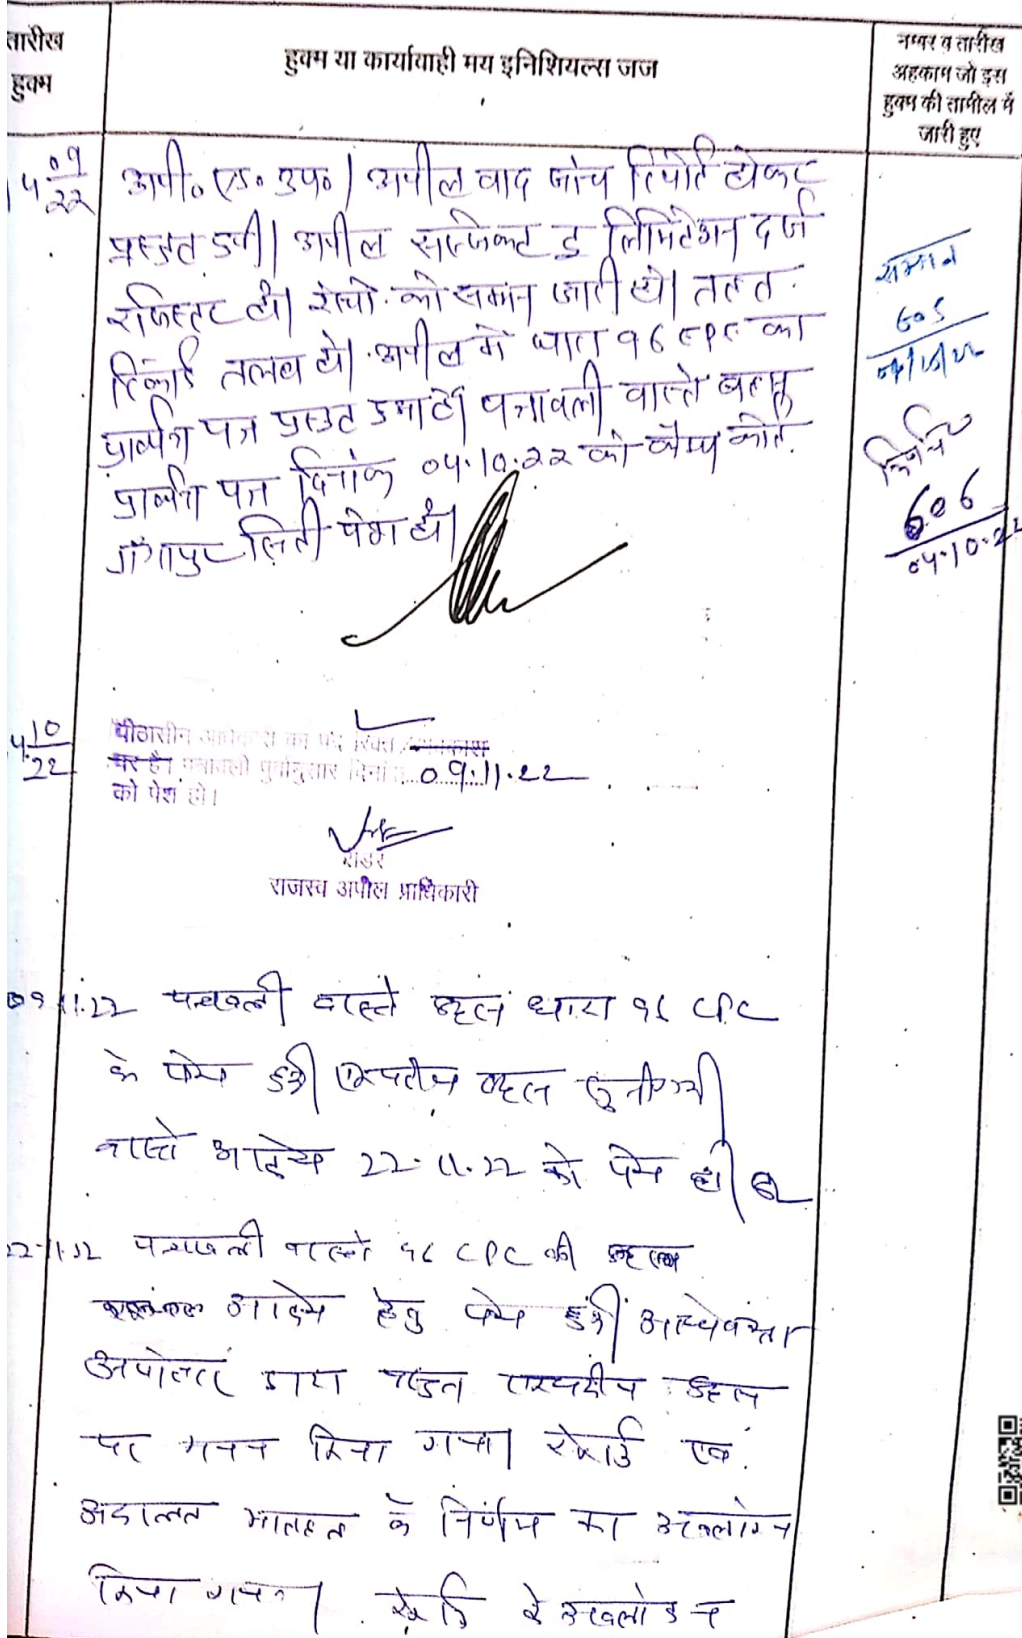 तारीख
हुक्म
हुक्म या कार्यवाही मय इनिशियल्स जज
नम्बर व तारीख
अहकाम जो इस
हुक्म की तामील में
जारी हुए
09
22
अपी० एड० उप०। अपील बाद जांच रिपोर्ट होकर
प्रस्तुत हुयी। अपील सब्जेक्ट टु लिमिटेशन दर्ज
रजिस्टर हो। रेस्पो. को सम्मन जारी हो। तहत
रिकार्ड तलब हो। अपील में धारा 96 CPC का
प्रार्थना पत्र प्रस्तुत पत्रावली वास्ते बहस
प्रार्थना पत्र दिनांक 04.10.22 को केम्प कोर्ट
गंगापुर सिटी पेश हो।
सम्मन
605
04/10/22
606
04.10.22
10
22
पीठासीन अधिकारी का पद रिक्त / अवकाश
पर है। पत्रावली पूर्वानुसार दिनांक 09.11.22
को पेश हो।
रीडर
राजस्व अपील प्राधिकारी
09.11.22 पत्रावली वास्ते बहस धारा 96 CPC
के पेश हुई। एकपक्षीय बहस सुनी गयी
वास्ते आदेश 22.11.22 को पेश हो।
22.11.22 पत्रावली वास्ते 96 CPC की बहस
आदेश हेतु पेश हुई। अधिवक्ता
अपीलांट द्वारा प्रस्तुत एकपक्षीय बहस
पर मनन किया गया। रेकार्ड एवं
अदालत मातहत के निर्णय का अवलोकन
किया गया। रेकार्ड के अवलोकन